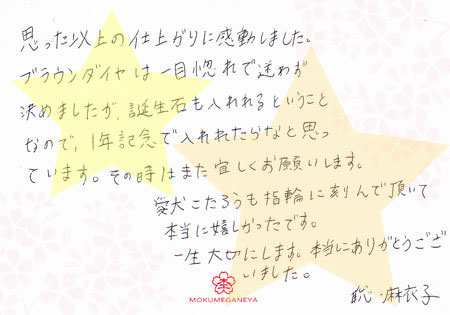 思った以上の仕上がりに感動しました。
ブラウンダイヤは一目惚れで迷わず
決めましたが、誕生石も入れれるということ
なので、1年記念で入れれたらなと思っ
ています。その時はまた宜しくお願いします。
愛犬こたろうも指輪に刻んで頂いて
本当に嬉しかったです。
一生大切にします。本当にありがとうござ
いました。
聡・麻衣子
MOKUMEGANEYA